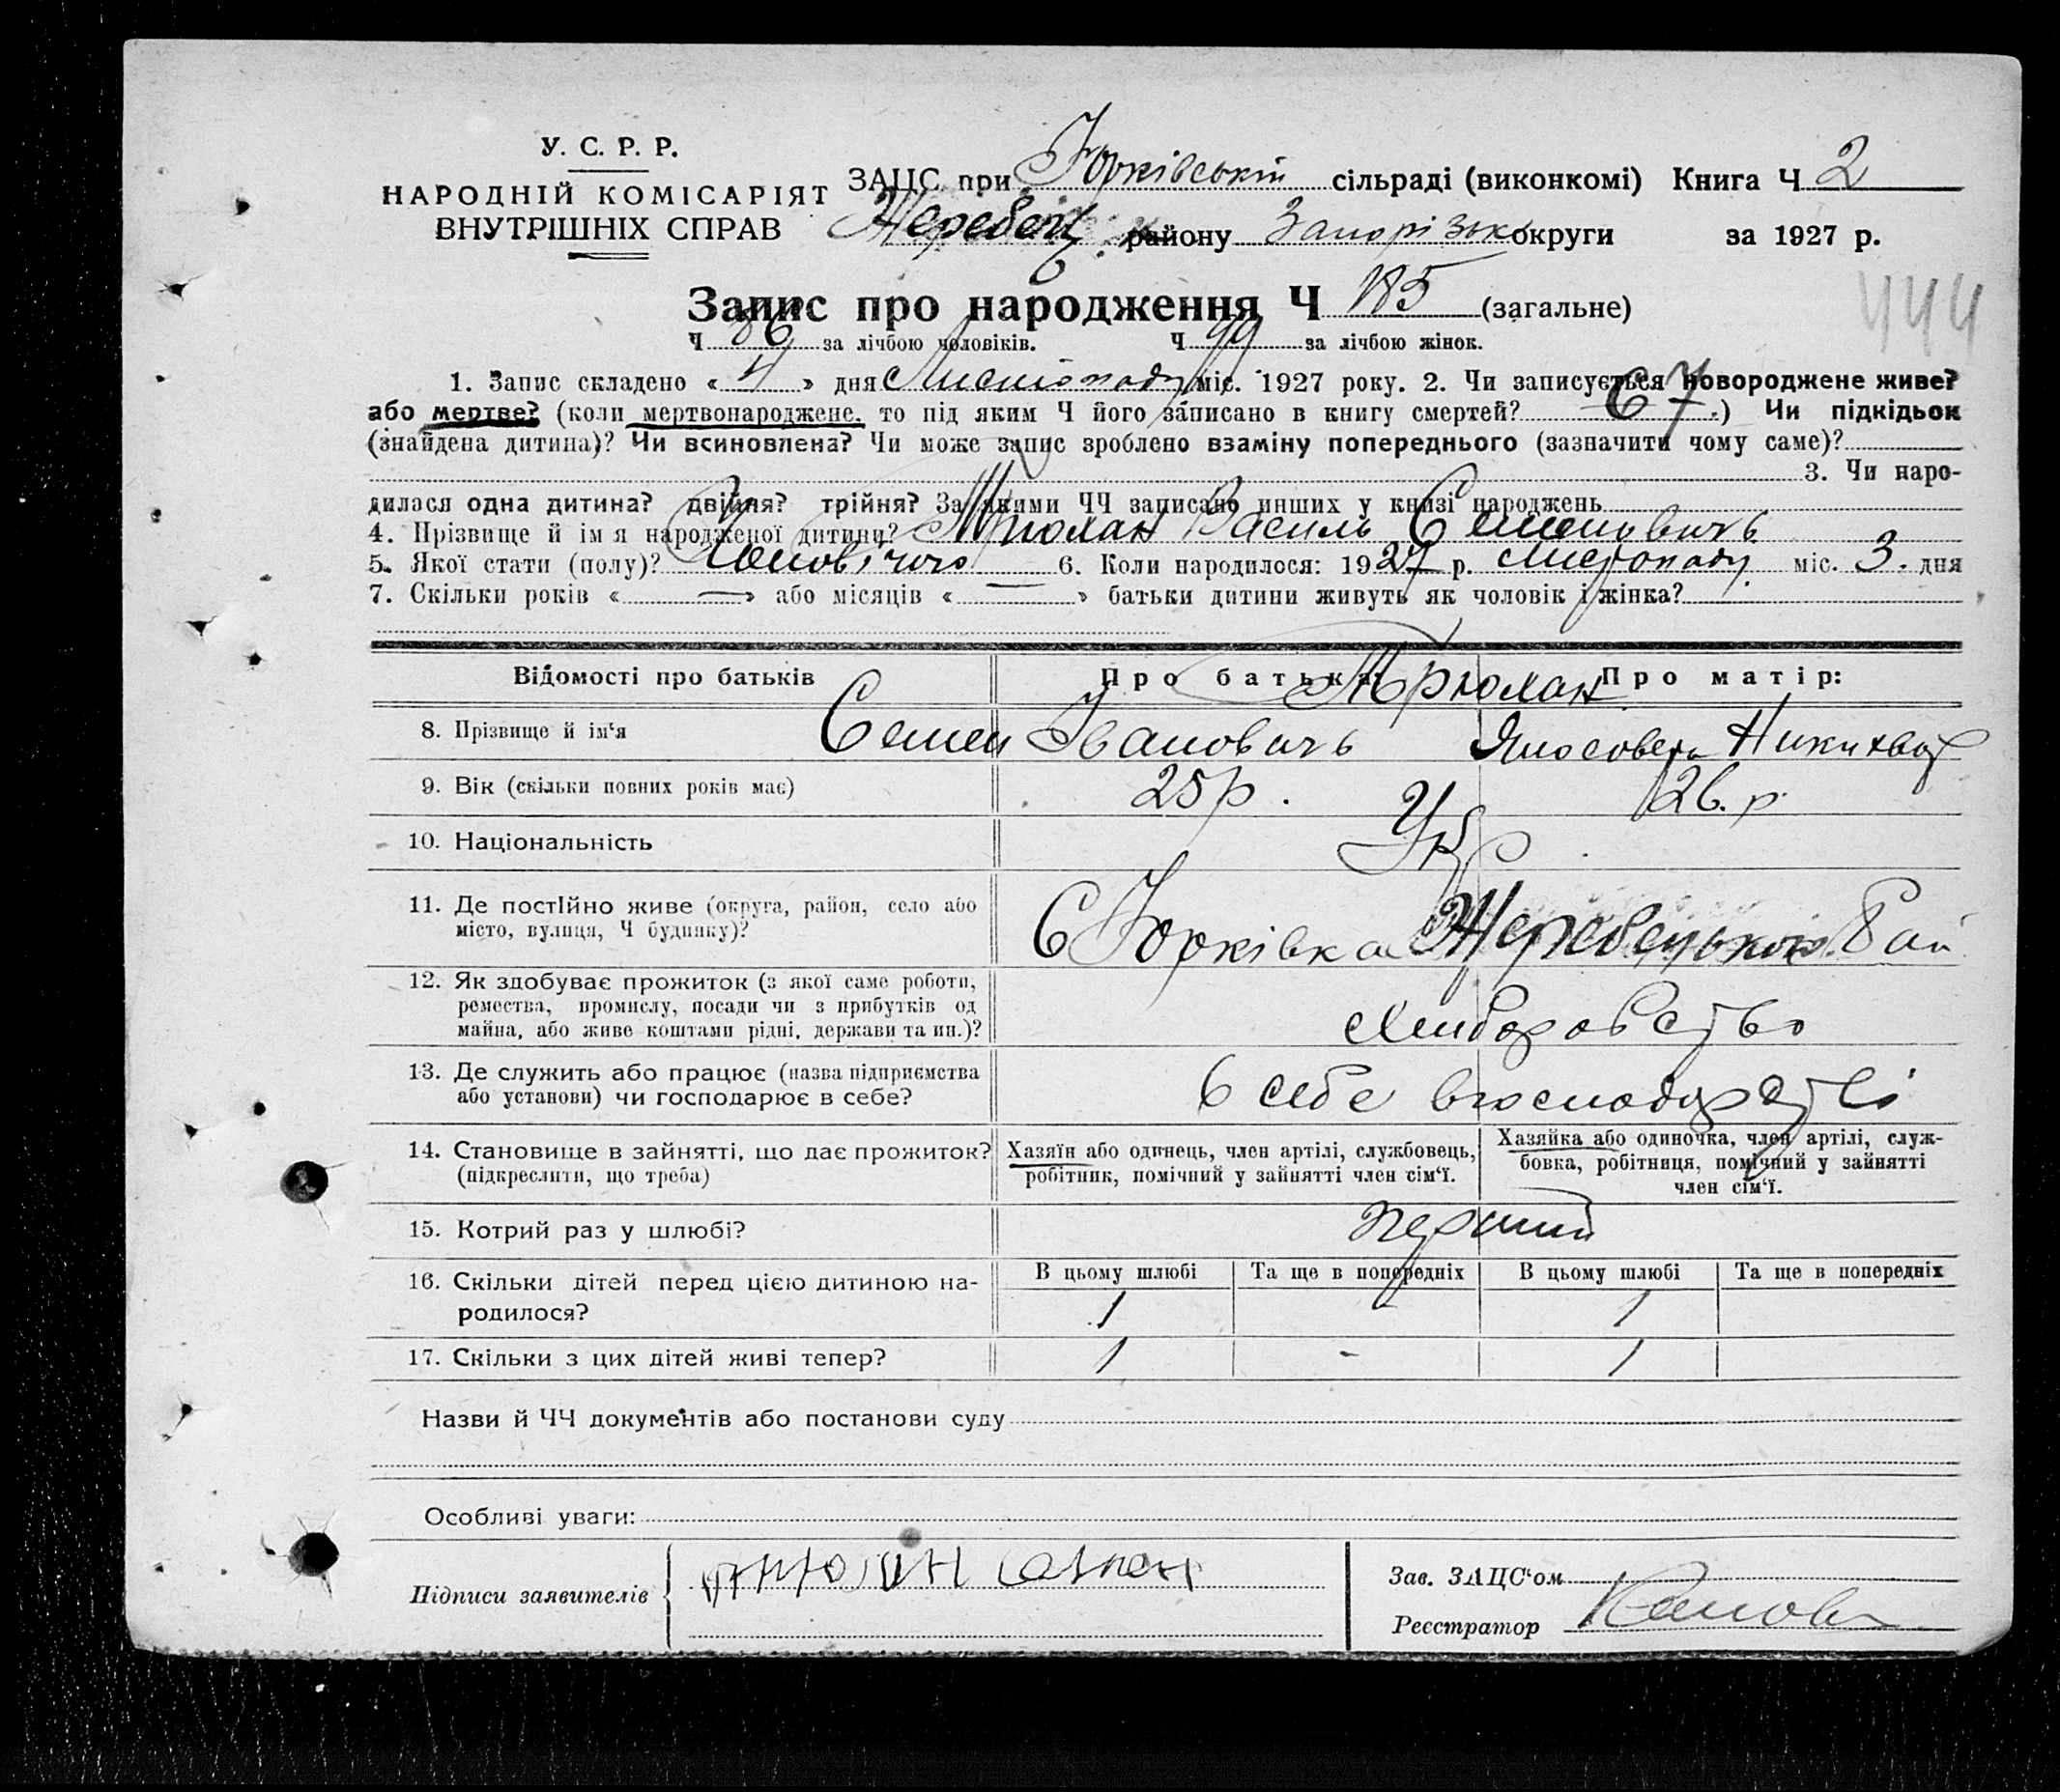 У. С. Р. Р.
НАРОДНІЙ КОМІСАРІЯТ
ВНУТРІШНІХ СПРАВ
ЗАЦС при Юрківській сільраді (виконкомі) Книга Ч 2
Жеребец. району Запорізьк округи за 1927 р.
Запис про народження Ч 185 (загальне)
444
Ч 86 за лічбою чоловіків. Ч 99 за лічбою жінок.
1. Запис складено « 4 » дня Листопаду міс. 1927 року. 2. Чи записується новороджене живе?
або мертве? (коли мертвонароджене, то під яким Ч його записано в книгу смертей? 67.) Чи підкідьок
(знайдена дитина)? Чи всиновлена? Чи може запис зроблено взаміну попереднього (зазначити чому саме)?
3. Чи наро-
дилася одна дитина? двійня? трійня? За якими ЧЧ записано инших у книзі народжень
4. Прізвище й імя народженої дитини? Трюхан Василь Семенович
5. Якої стати (полу)? Чоловічого 6. Коли народилося: 1927 р. Листопаду міс. 3. дня
7. Скільки років « — » або місяців « — » батьки дитини живуть як чоловік і жінка?
Відомості про батьків Про батька: Про матір:
Трюхан
8. Прізвище й ім‘я Семен Івановичь
9. Вік (скільки повних років має) 25 р. 26. р.
10. Національність Укр
11. Де постійно живе (округа, район, село або
місто, вулиця, Ч будинку)?
С Юрківка Жеребецького Рай
12. Як здобуває прожиток (з якої саме роботи,
ремества, промислу, посади чи з прибутків од
майна, або живе коштами рідні, держави та ин.)?
Хлиборобство
13. Де служить або працює (назва підприємства
або установи) чи господарює в себе?
в себе в господарстві
14. Становище в зайнятті, що дає прожиток?
(підкреслити, що треба)
Хазяїн або одинець, член артілі, службовець,
робітник, помічний у зайнятті член сім‘ї.
Хазяйка або одиночка, член артілі, служ-
бовка, робітниця, помічний у зайнятті
член сім‘ї.
15. Котрий раз у шлюбі? перший
16. Скільки дітей перед цією дитиною на-
родилося?
В цьому шлюбі Та ще в попередніх В цьому шлюбі Та ще в попередніх
1 1
17. Скільки з цих дітей живі тепер? 1 - 1
Назви й ЧЧ документів або постанови суду
Особливі уваги:
Підписи заявителів
Зав. ЗАЦС‘ом
Реєстратор